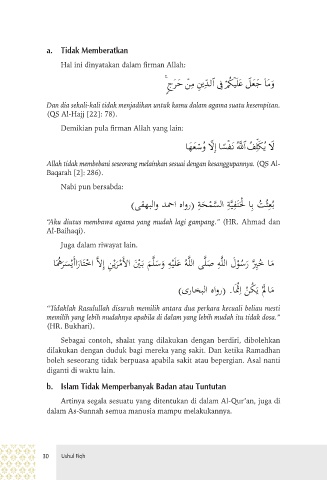 a. Tidak Memberatkan
Hal ini dinyatakan dalam firman Allah:
وَمَا جَعَلَ عَلَيْكُمْ فِى الدِّينِ مِنْ حَرَجٍ
Dan dia sekali-kali tidak menjadikan untuk kamu dalam agama suatu kesempitan.
(QS Al-Hajj [22]: 78).
Demikian pula firman Allah yang lain:
لَا يُكَلِّفُ اللَّهُ نَفْسًا إِلَّا وُسْعَهَا
Allah tidak membebani seseorang melainkan sesuai dengan kesanggupannya. (QS Al-
Baqarah [2]: 286).
Nabi pun bersabda:
بُعِثْتُ بِالْحَنِيْفِيَّةِ السَّمْحَةِ (رواه احمد والبهيقى)
"Aku diutus membawa agama yang mudah lagi gampang." (HR. Ahmad dan
Al-Baihaqi).
Juga dalam riwayat lain.
مَا خُيِّرَ رَسُوْلُ اللَّهِ صَلَّى اللَّهُ عَلَيْهِ وَسَلَّمَ بَيْنَ الْأَمْرَيْنِ إِلَّا اخْتَارَ أَيْسَرَهُمَا
مَا لَمْ يَكُنْ إِثْمًا. (رواه البخارى)
"Tidaklah Rasulullah disuruh memilih antara dua perkara kecuali beliau mesti
memilih yang lebih mudahnya apabila di dalam yang lebih mudah itu tidak dosa."
(HR. Bukhari).
Sebagai contoh, shalat yang dilakukan dengan berdiri, dibolehkan
dilakukan dengan duduk bagi mereka yang sakit. Dan ketika Ramadhan
boleh seseorang tidak berpuasa apabila sakit atau bepergian. Asal nanti
diganti di waktu lain.
b. Islam Tidak Memperbanyak Badan atau Tuntutan
Artinya segala sesuatu yang ditentukan di dalam Al-Qur'an, juga di
dalam As-Sunnah semua manusia mampu melakukannya.
30 Ushul fiqh